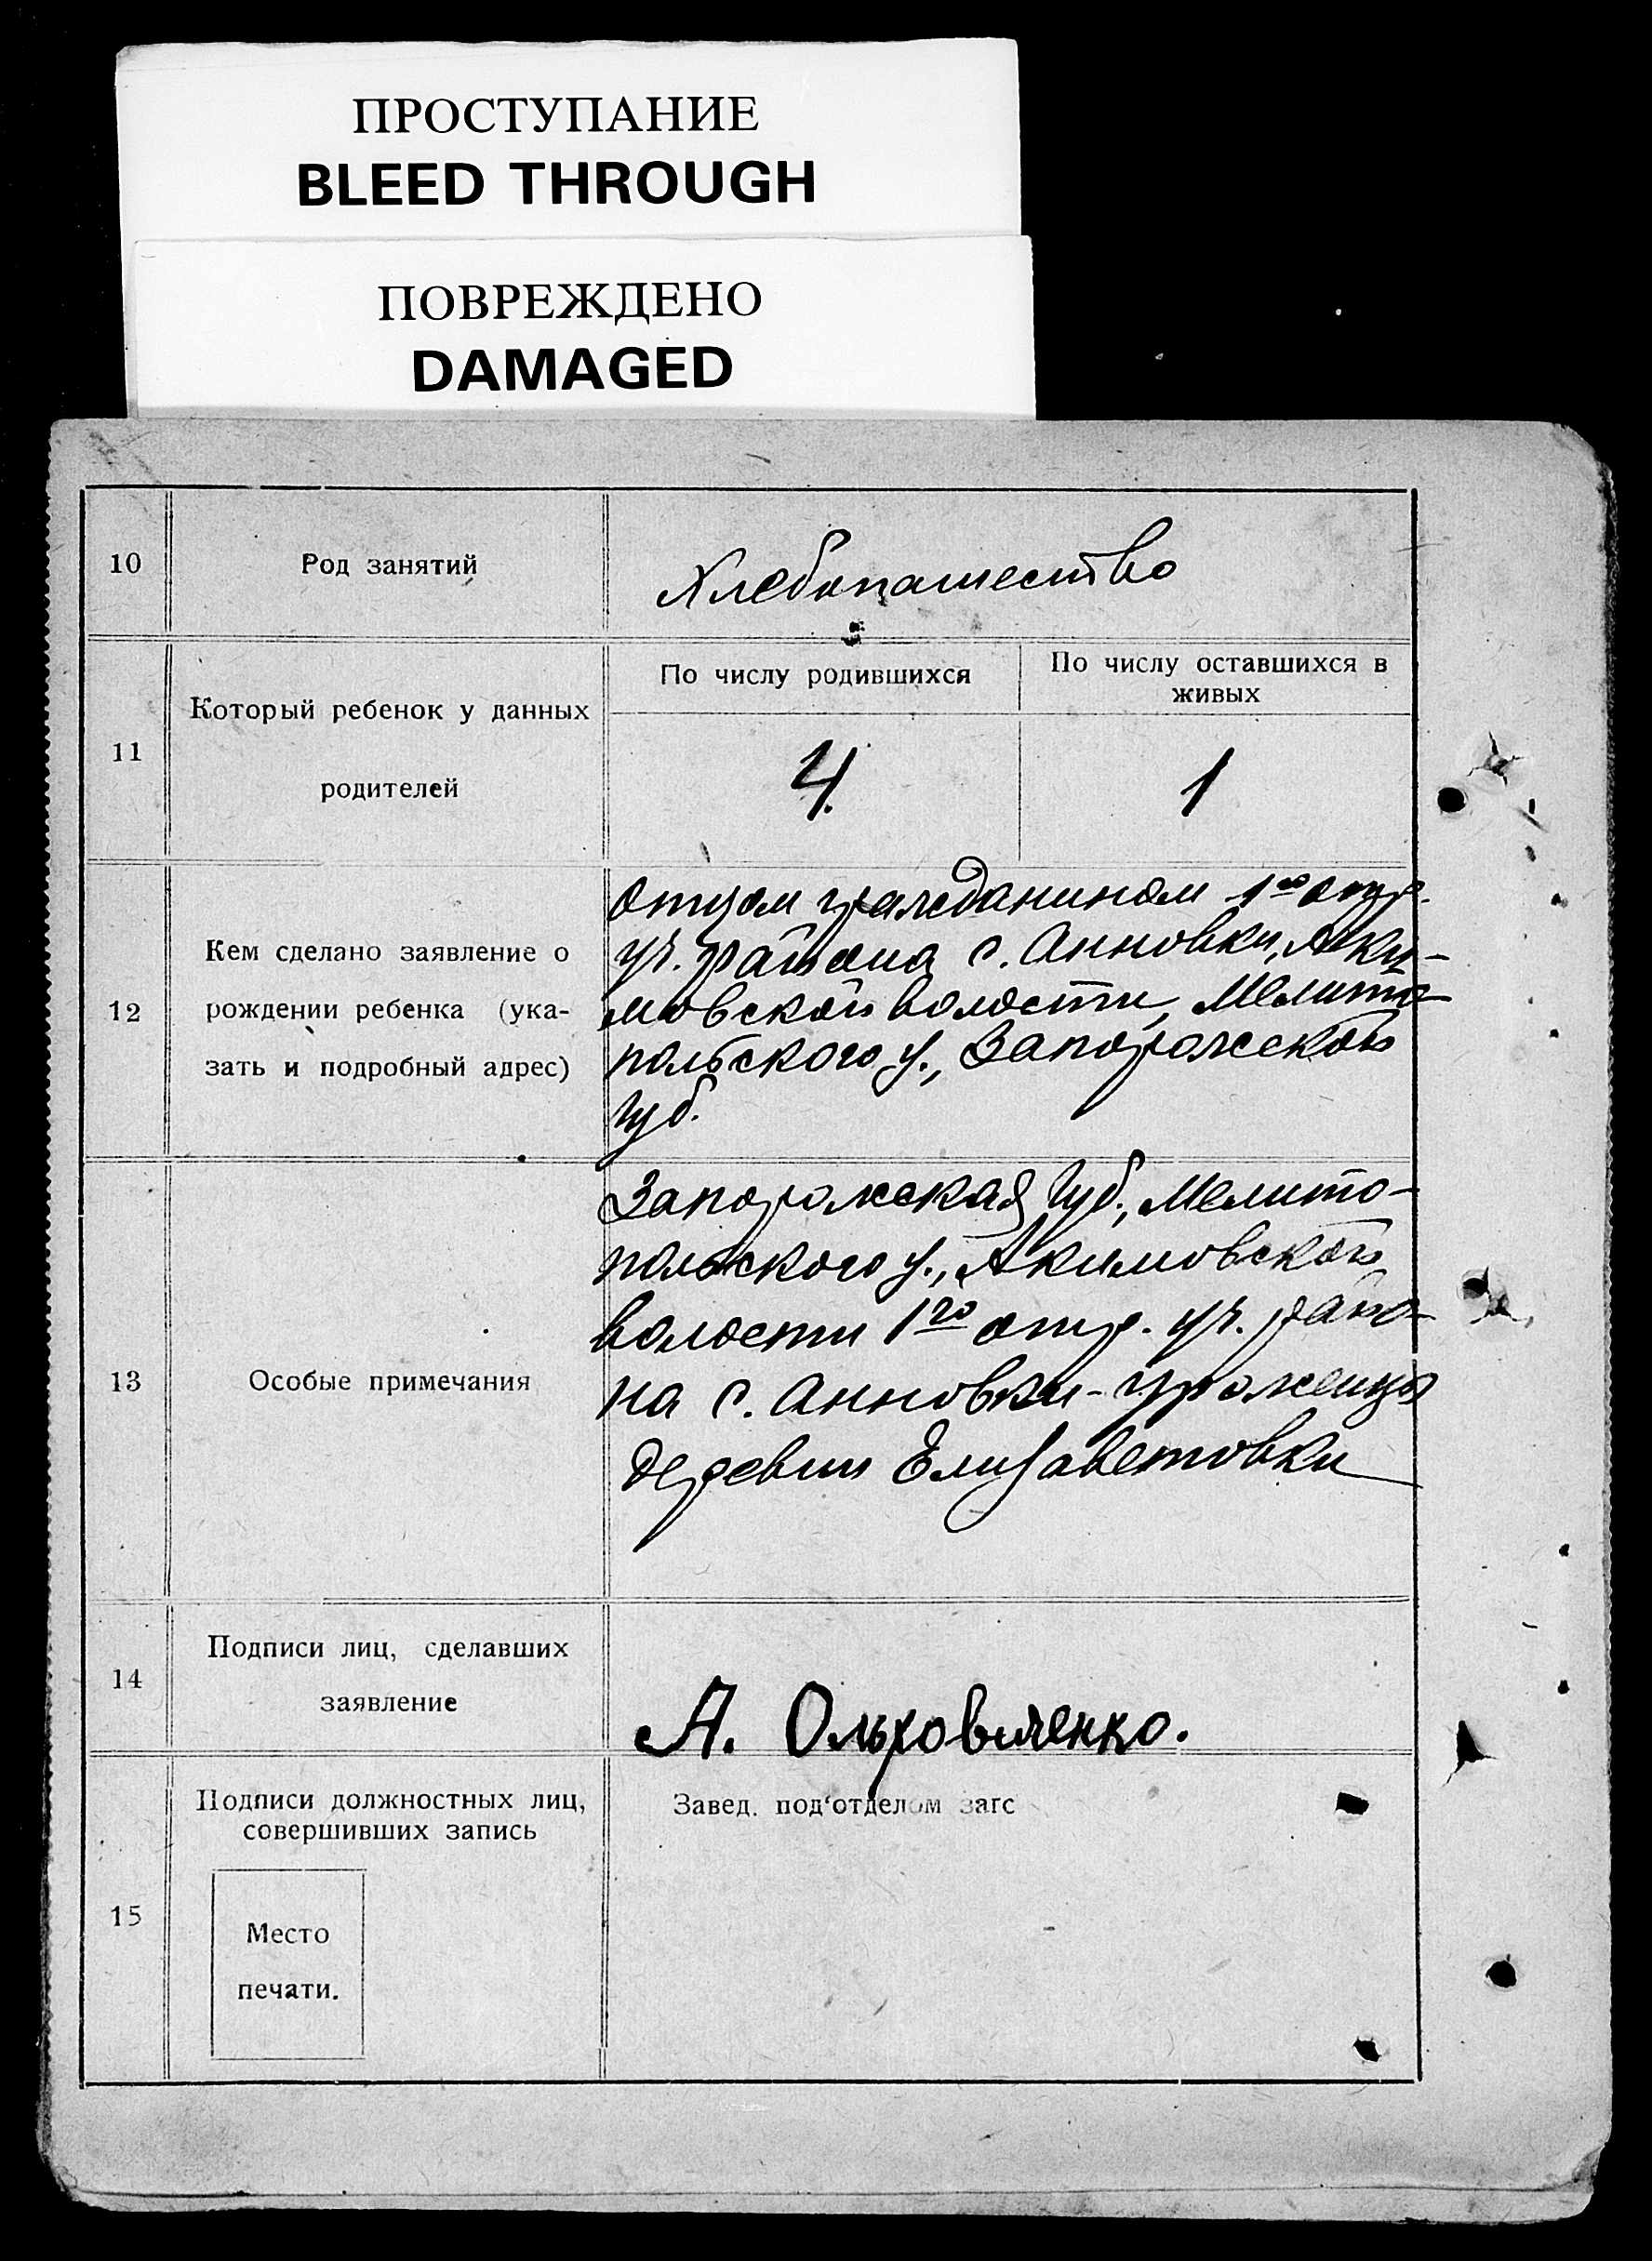 ПРОСТУПАНИЕ
BLEED THROUGH
ПОВРЕЖДЕНО
DAMAGED
10
Род занятий
Хлебопашество
11
Который ребенок у данных
родителей
По числу родившихся
По числу оставшихся в
живых
4.
1
12
Кем сделано заявление о
рождении ребенка (ука-
зать и подробный адрес)
Отцом гражданином 1го отр.
уч. района с. Анновки, Аки-
мовской волости, Мелито-
польского у., Запорожской
губ.
13
Особые примечания
Запорожская губ., Мелито-
польского у., Акимовской
волости 1го отр. уч. райо-
на с. Анновки - уроженцы
деревни Елизаветовки
14
Подписи лиц, сделавших
заявление
А. Ольховиченко.
15
Подписи должностных лиц,
совершивших запись
Завед. под'отделом загс
Место
печати.